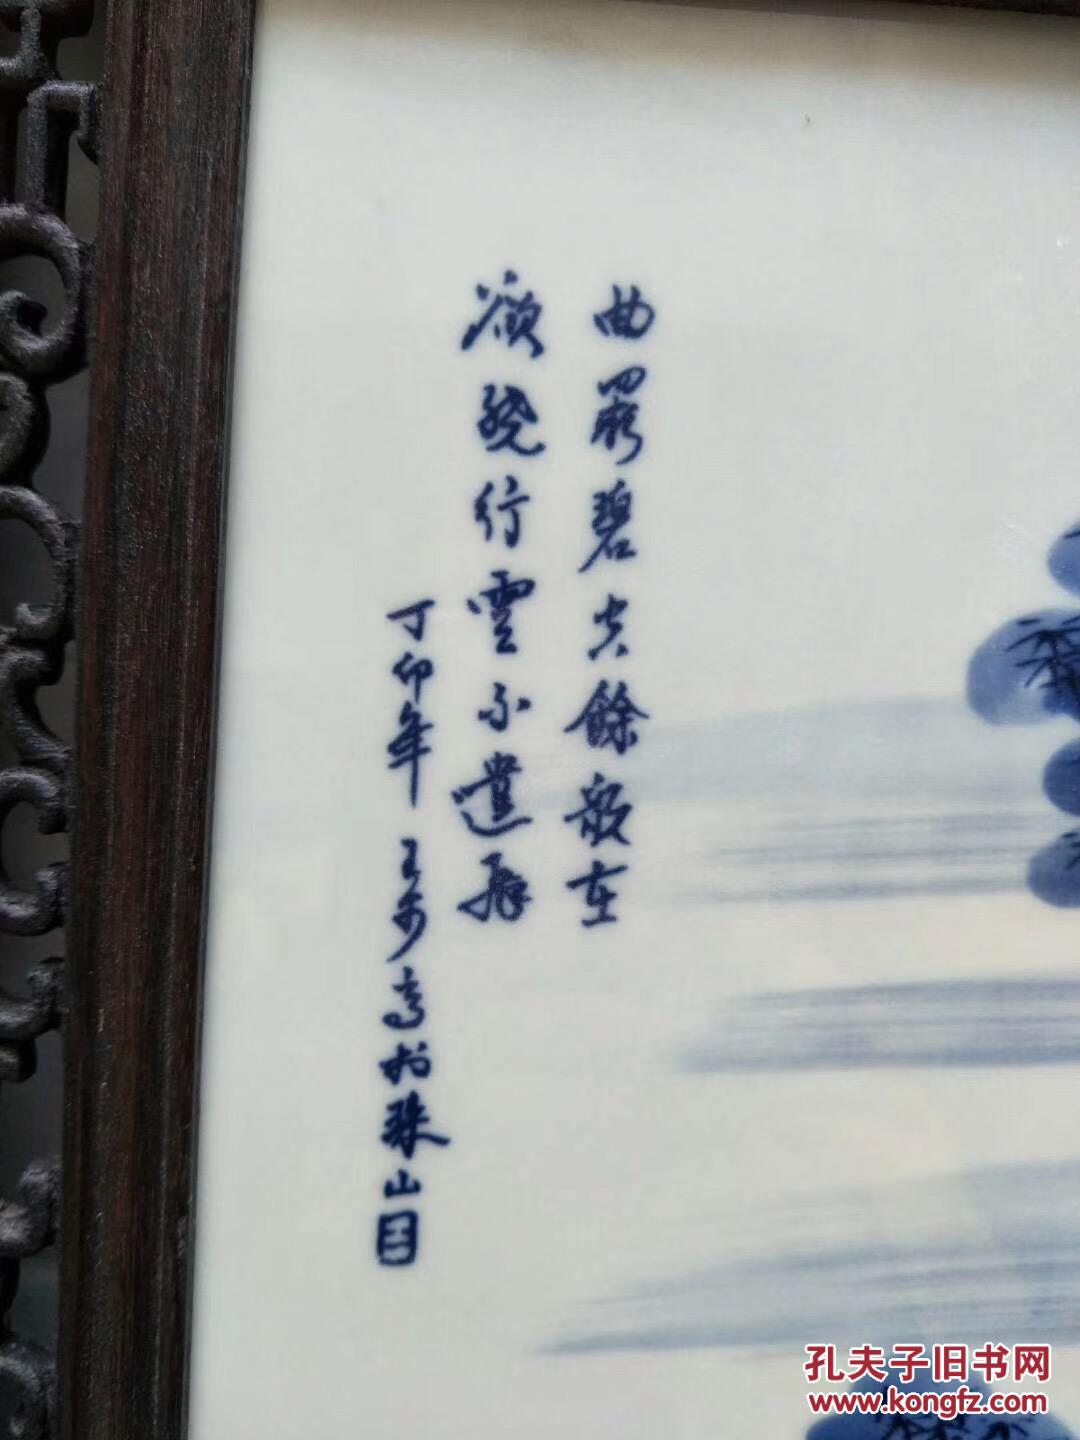 曲罷碧天餘韻在
欲繞行雲不遣飛
丁卯年 王步寫於珠山
孔夫子旧书网
www.kongfz.com